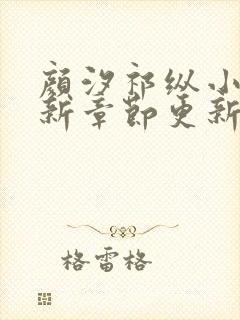 顏汐祁纵小
新章節更新
格雷格